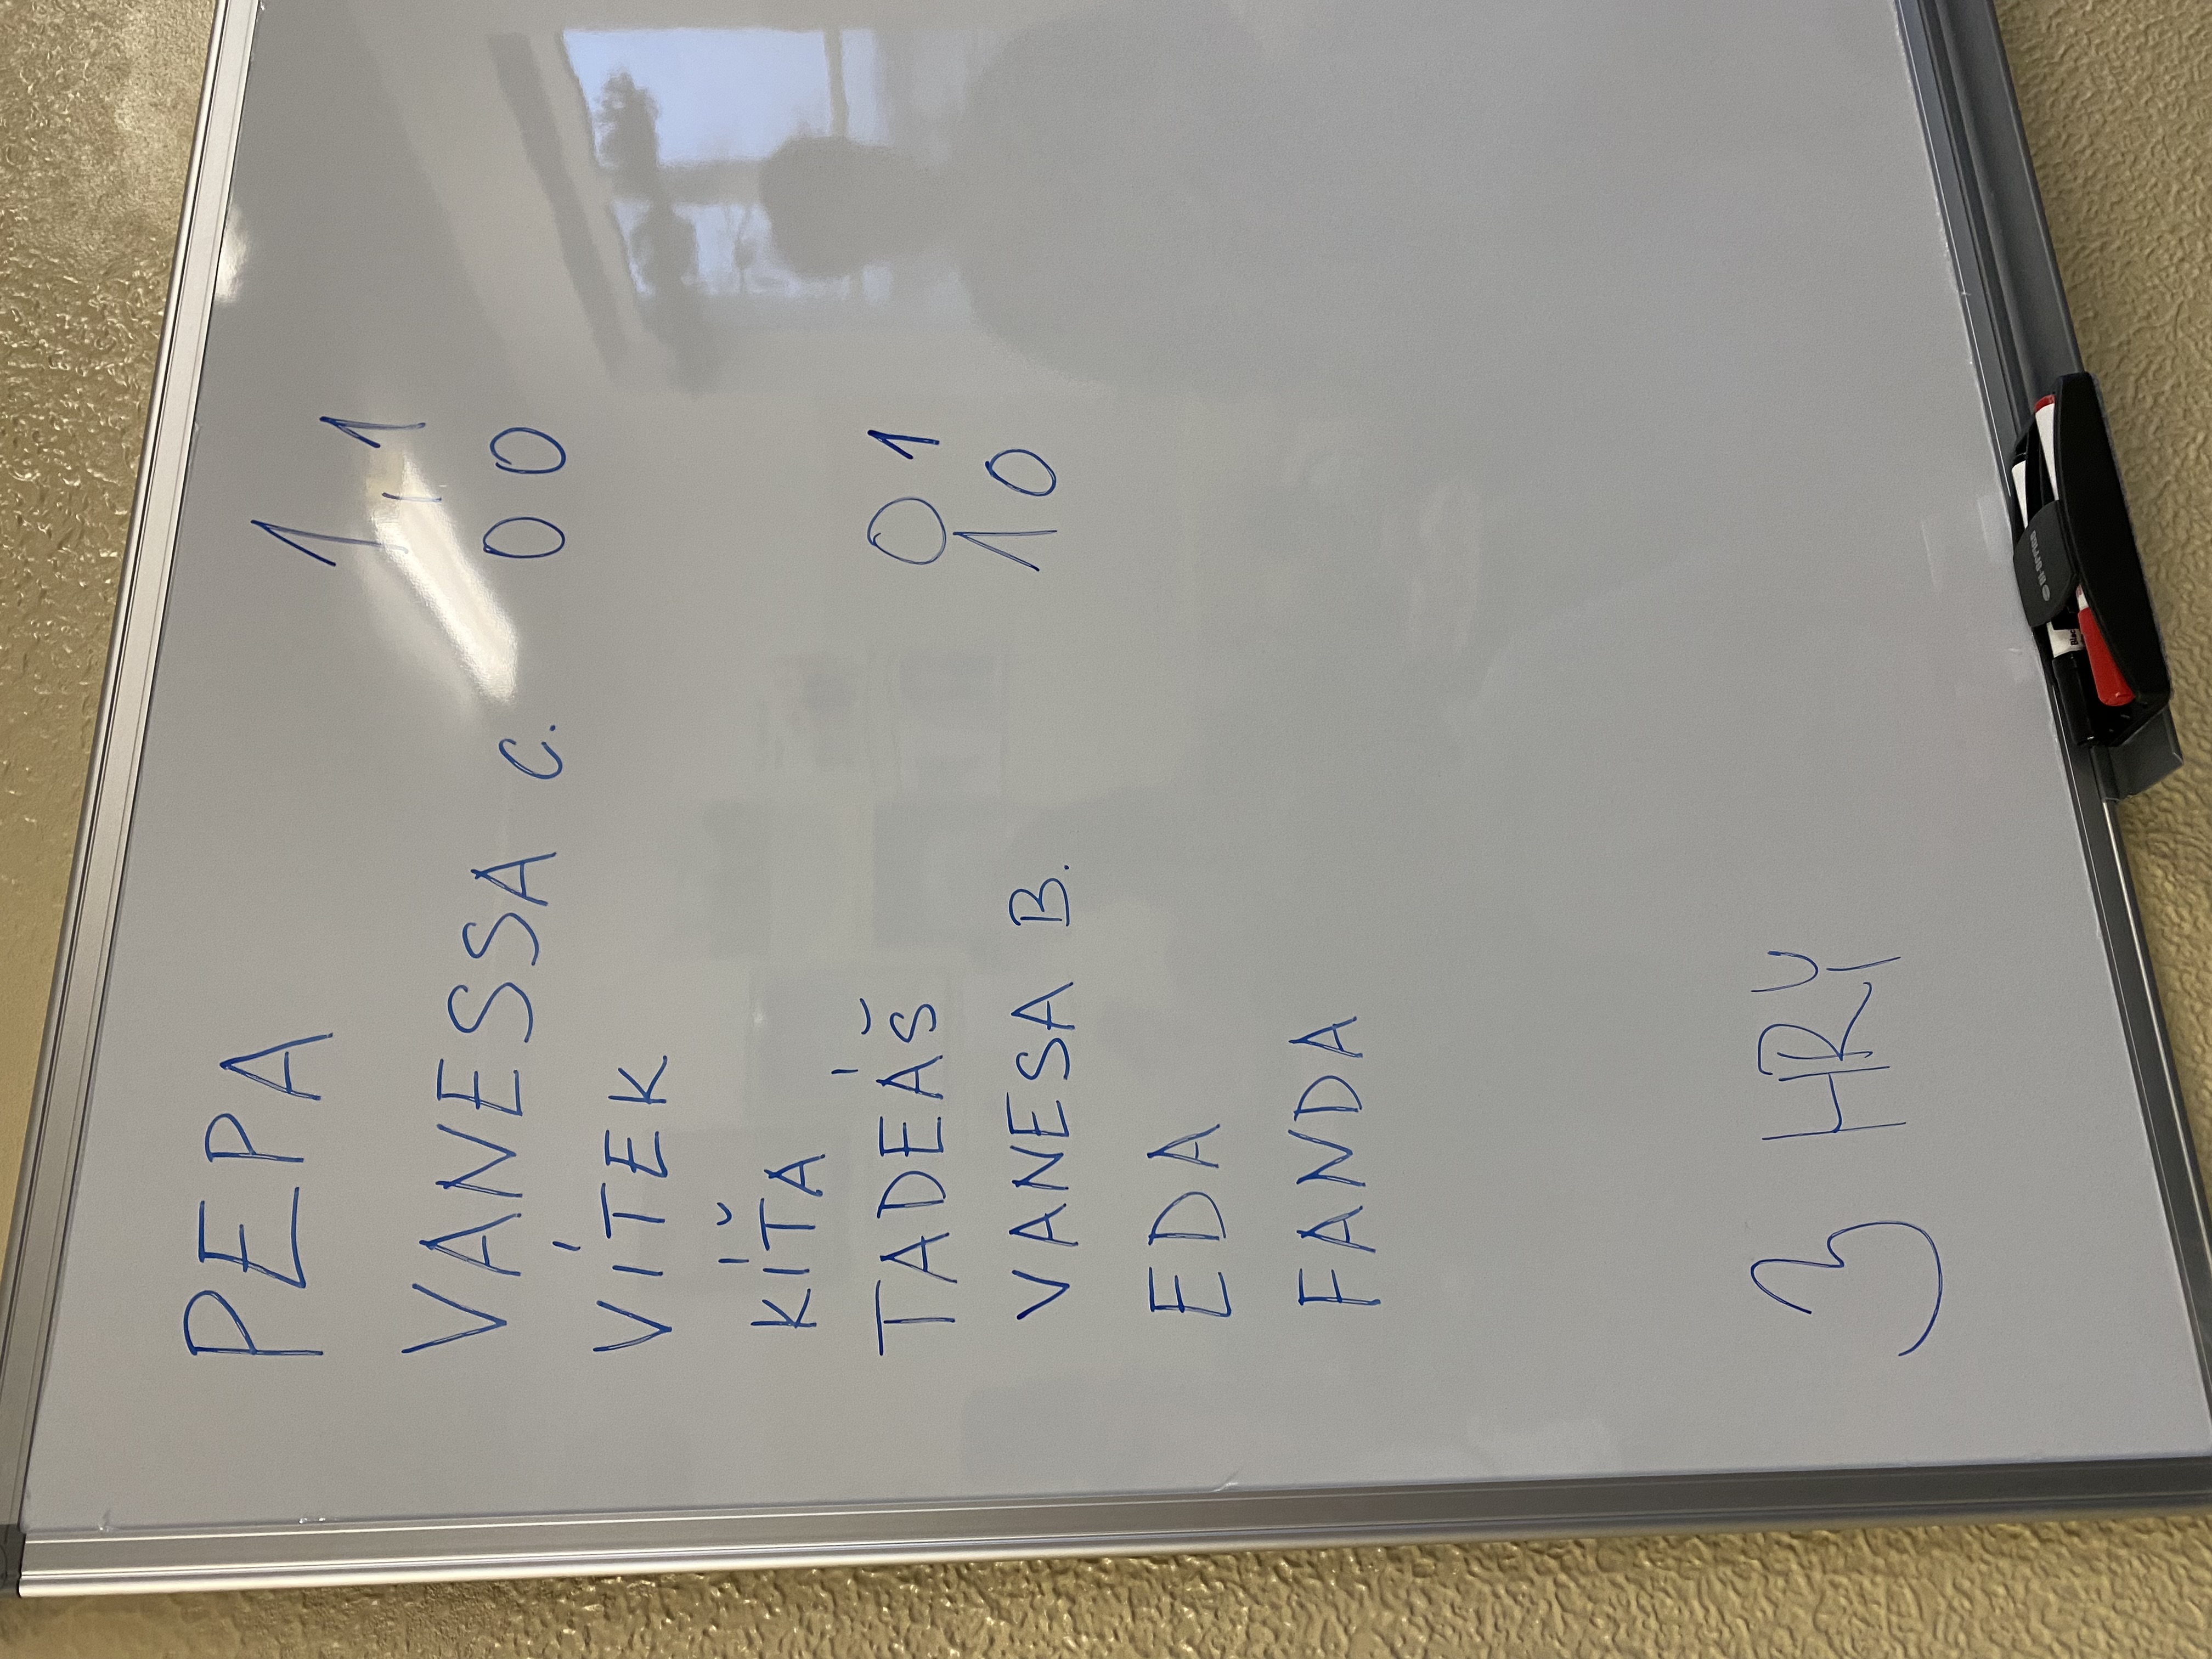 PEPA 1 1
VANESSA C. 0 0
VÍTEK
KÍŤA
TADEÁŠ 0 1
VANESA B. 1 0
EDA
FANDA
3 HRY